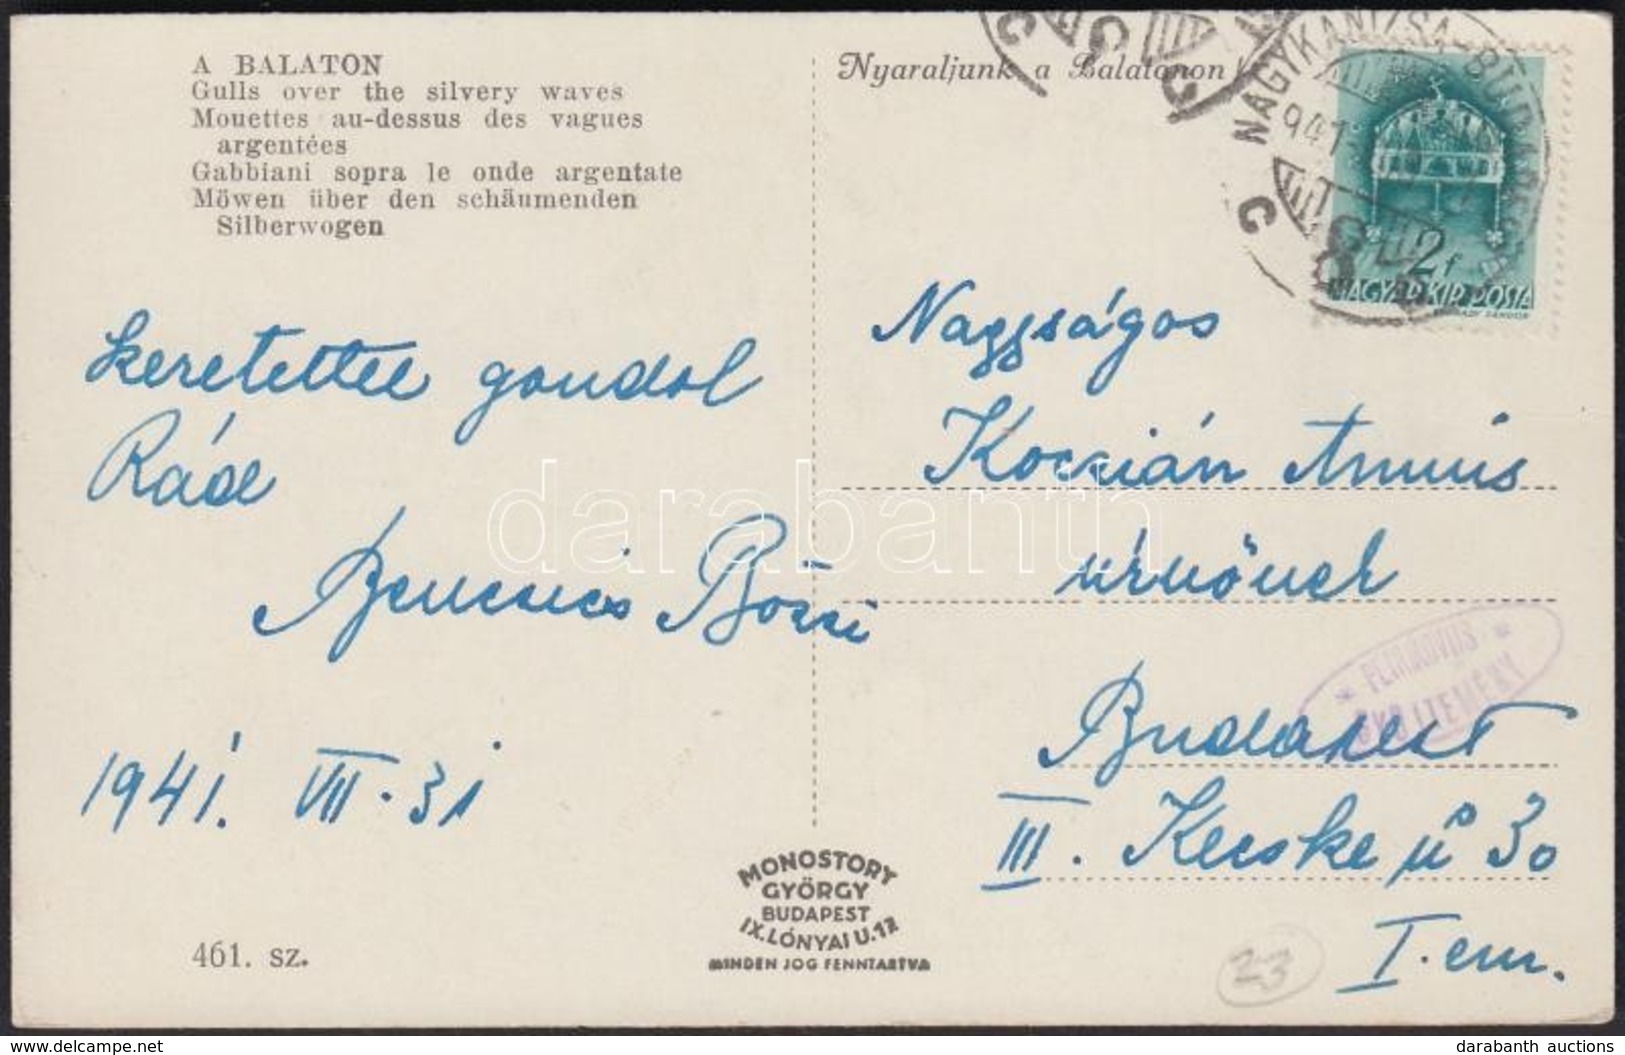 A BALATON
Gulls over the silvery waves
Mouettes au-dessus des vagues
argentées
Gabbiani sopra le onde argentate
Möwen über den schäumenden
Silberwogen
Nyaraljunk a Balatonon
NAGYKANIZSA-BUDAPEST
941
2f
MAGYAR KIR. POSTA
gondol
Rád
Bencsics Bözsi
1941. VII. 31
Nagyságos
Koczián Annus
úrnőnek
Budapest
III. Kecske u 30
I. em.
* PETRIKOVITS *
GYŰJTEMÉNY
MONOSTORY
GYÖRGY
BUDAPEST
IX. LÓNYAI U. 12
MINDEN JOG FENNTARTVA
461. sz.
23
darabanth
https://www.darabanth.com
darabanth auctions